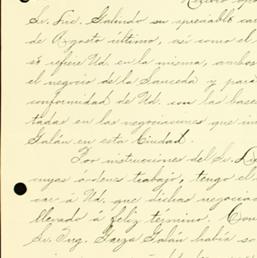 Sr. Lic. Galindo su apreciable car
de Agosto último, así como el
se refiere Ud. en la misma, ambos
el negocio de la Sauceda y para
conformidad de Ud. con las bases
tadas en las negociaciones que in
Galán en esta Ciudad.
Por instrucciones del Sr.
cuyas órdenes trabajo, tengo el
car á Ud. que dichas negocia
llevado á feliz término. Com
Sr. Ing. Garza Galán había so